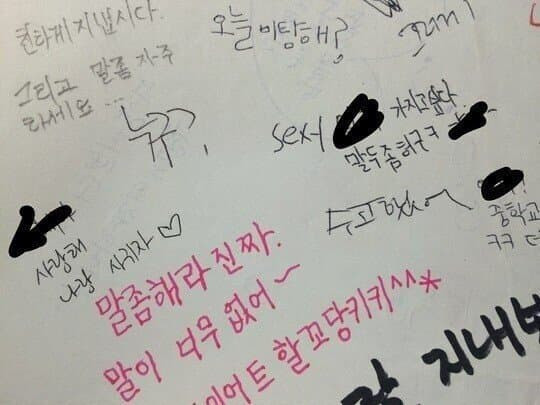 친하게 지냅시다.
그리고 말좀 자주
하세요...
오늘 미팅해?
뉴규?
sexy
가지고싶다
말두좀하구ㅋ
수고했어
사랑해
나랑 사귀자♡
중학교
ㅋㅋ
말좀해라 진짜.
말이 너무 없어~
이어트 할꼬당키키^^*
지내